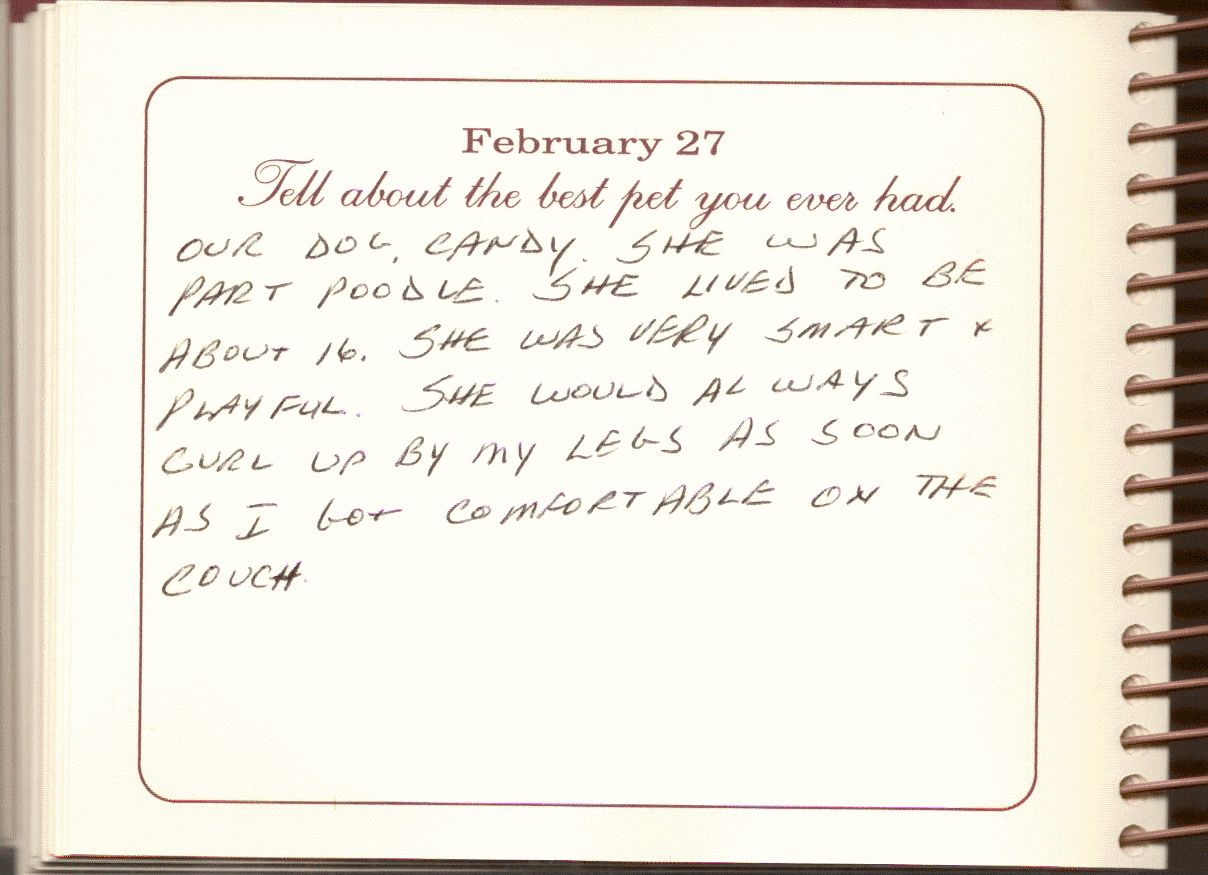 February 27
Tell about the best pet you ever had.
OUR DOG, CANDY. SHE WAS
PART POODLE. SHE LIVED TO BE
ABOUT 16. SHE WAS VERY SMART +
PLAYFUL. SHE WOULD ALWAYS
CURL UP BY MY LEGS AS SOON
AS I GOT COMFORTABLE ON THE
COUCH.